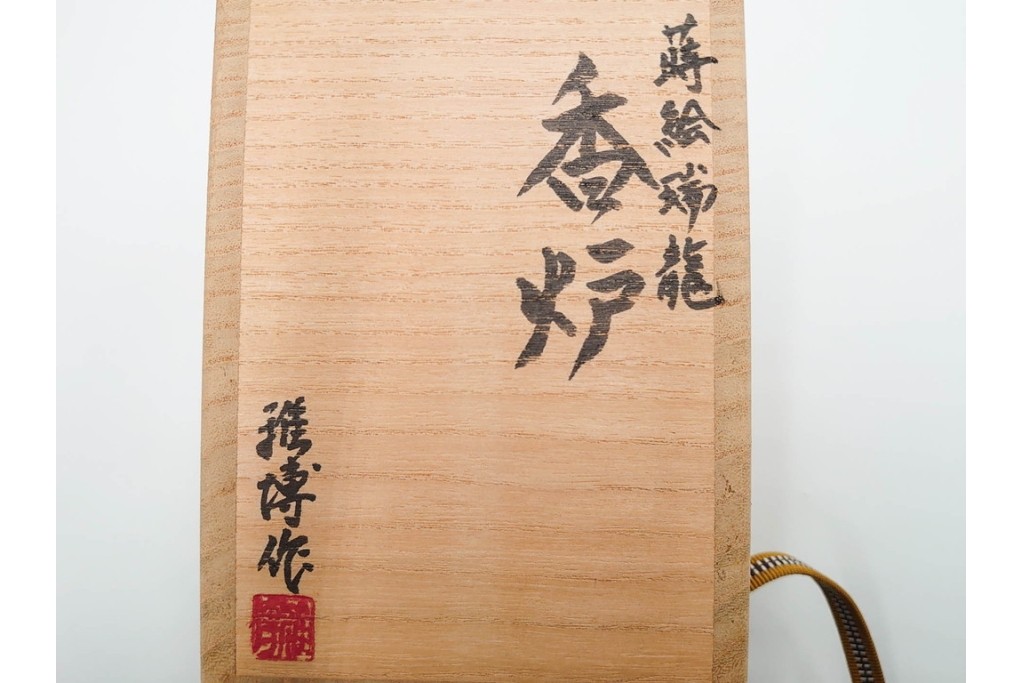 蒔絵瑞龍
香炉
雅博作